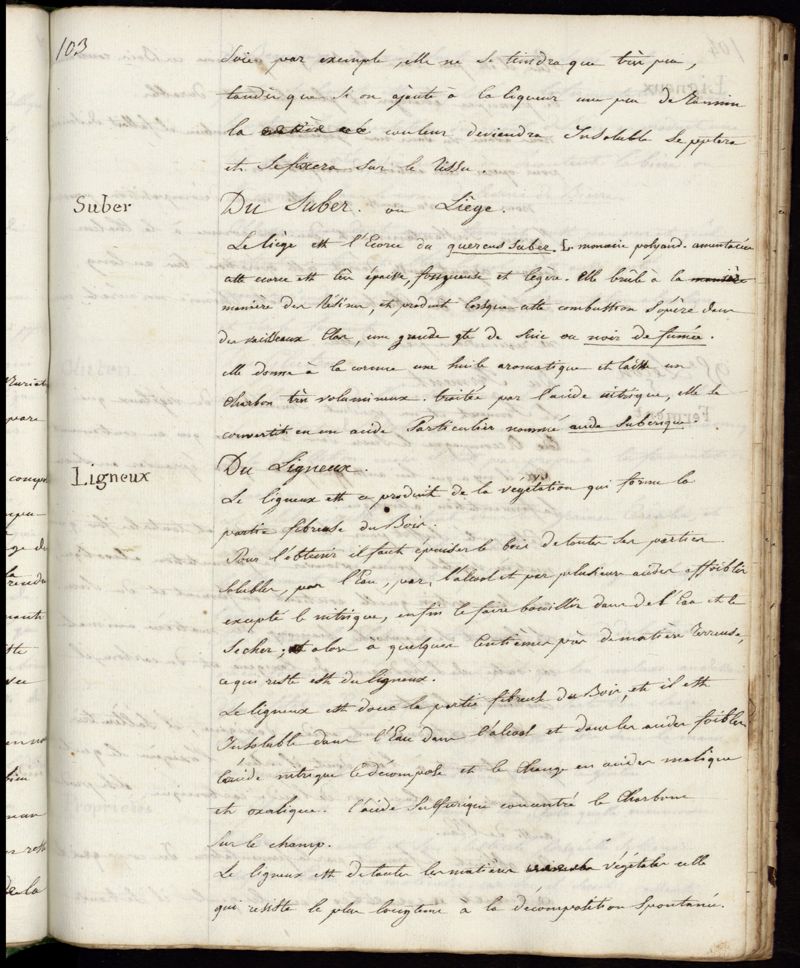 103
Soie par exemple, elle ne se tiendra que très peu,
tandis que si on ajoute à la liqueur un peu de Tannin
la couleur deviendra Insoluble se pptera
et se fixera sur le tissu.
Suber
Du Suber. ou Liège.
Le liège est l'Ecorce du quercus suber. L. monoecie polyand. amentacées
cette ecorce est très épaisse, fongueuse et légère. elle brûle à la manière
manière des Résines, et produit lorsque cette combustion s'opère dans
des vaisseaux clos, une grande qté de suie ou noir de fumée.
elle donne à la cornue une huile aromatique et laisse un
charbon très volumineux. traitée par l'acide nitrique, elle se
convertit en un acide Particulier nommé acide Subérique.
Ligneux
Du Ligneux.
Le ligneux est ce produit de la végétation qui forme la
partie fibreuse du Bois.
Pour l'obtenir il faut épuiser le bois de toutes ses parties
solubles, par l'Eau, par l'alcool et par plusieurs acides affoiblis
excepté le nitrique, enfin le faire bouillir dans de l'Eau et le
secher, alors à quelques Centièmes près de matière terreuse,
ce qui reste est du ligneux.
Le ligneux est donc la partie fibreuse du Bois, et il est
Insoluble dans l'Eau dans l'alcool et dans les acides foibles
l'acide nitrique le décompose et le change en acides malique
et oxalique. l'acide Sulfurique concentré le charbone
sur le champ.
Le ligneux est de toutes les matières végétales celle
qui résiste le plus longtems à la décomposition spontanée.